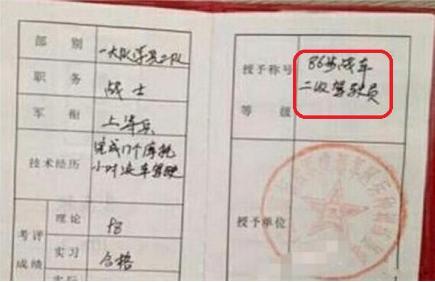 部别 一大队学员二队
职务 战士
军衔 上等兵
技术经历 完成117个摩托
小时汽车驾驶
考评成绩
理论 98
实习 合格
实际
授予称号 86步战车
二级驾驶员
等级
授予单位